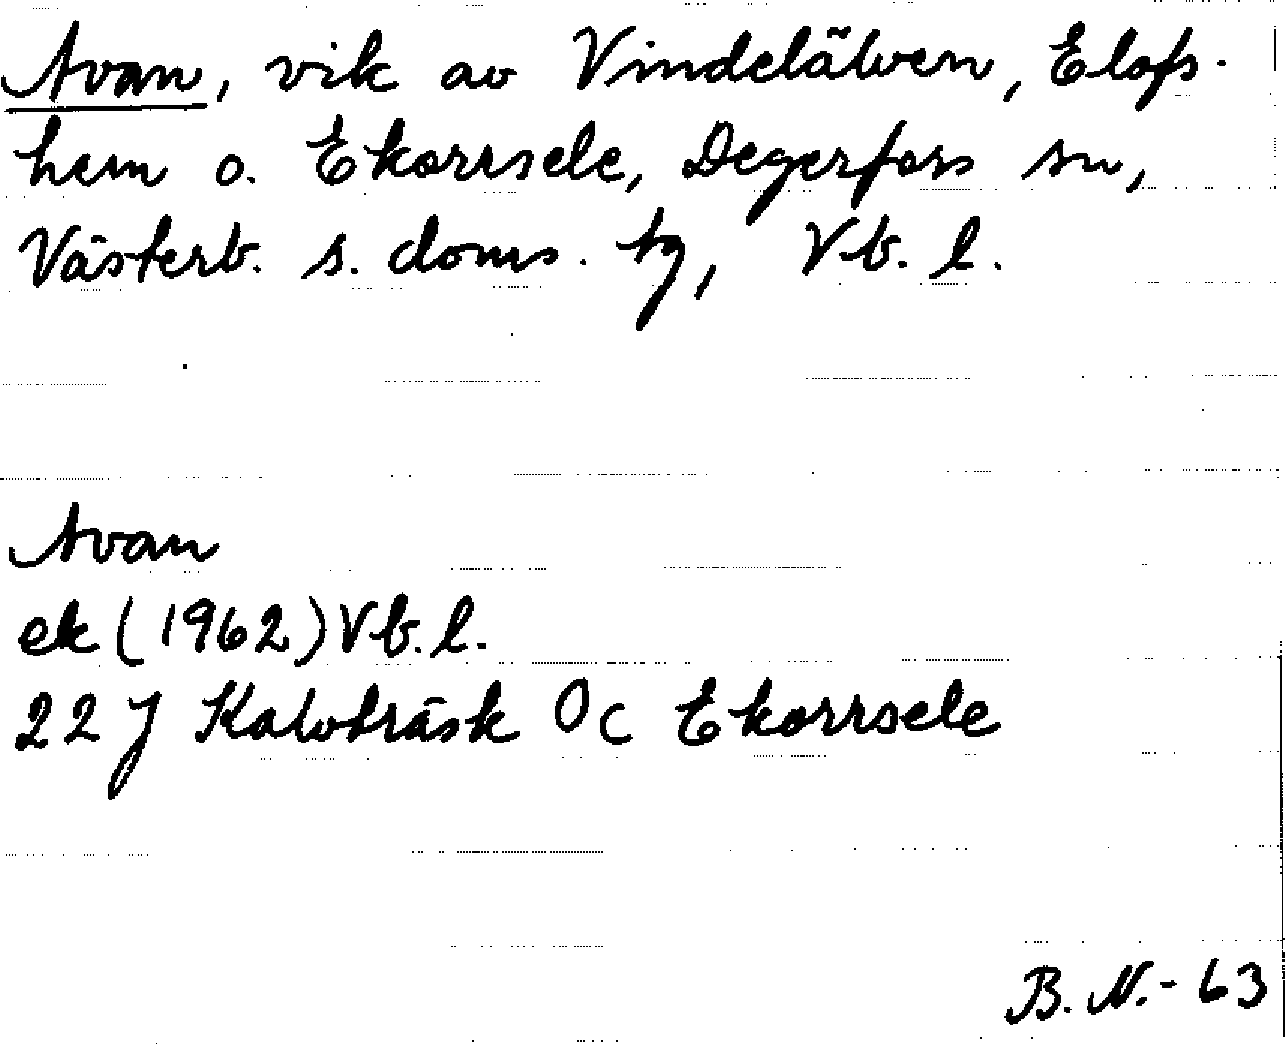 Avan, vik av Vindelälven, Elofs-
hem o. Ekorrsele, Degerfors sn,
Västerb. s. doms. tg, Vb. l.
Avan
ek (1962) Vb. l.
22 J Kalvträsk 0c Ekorrsele
B. N. - 63